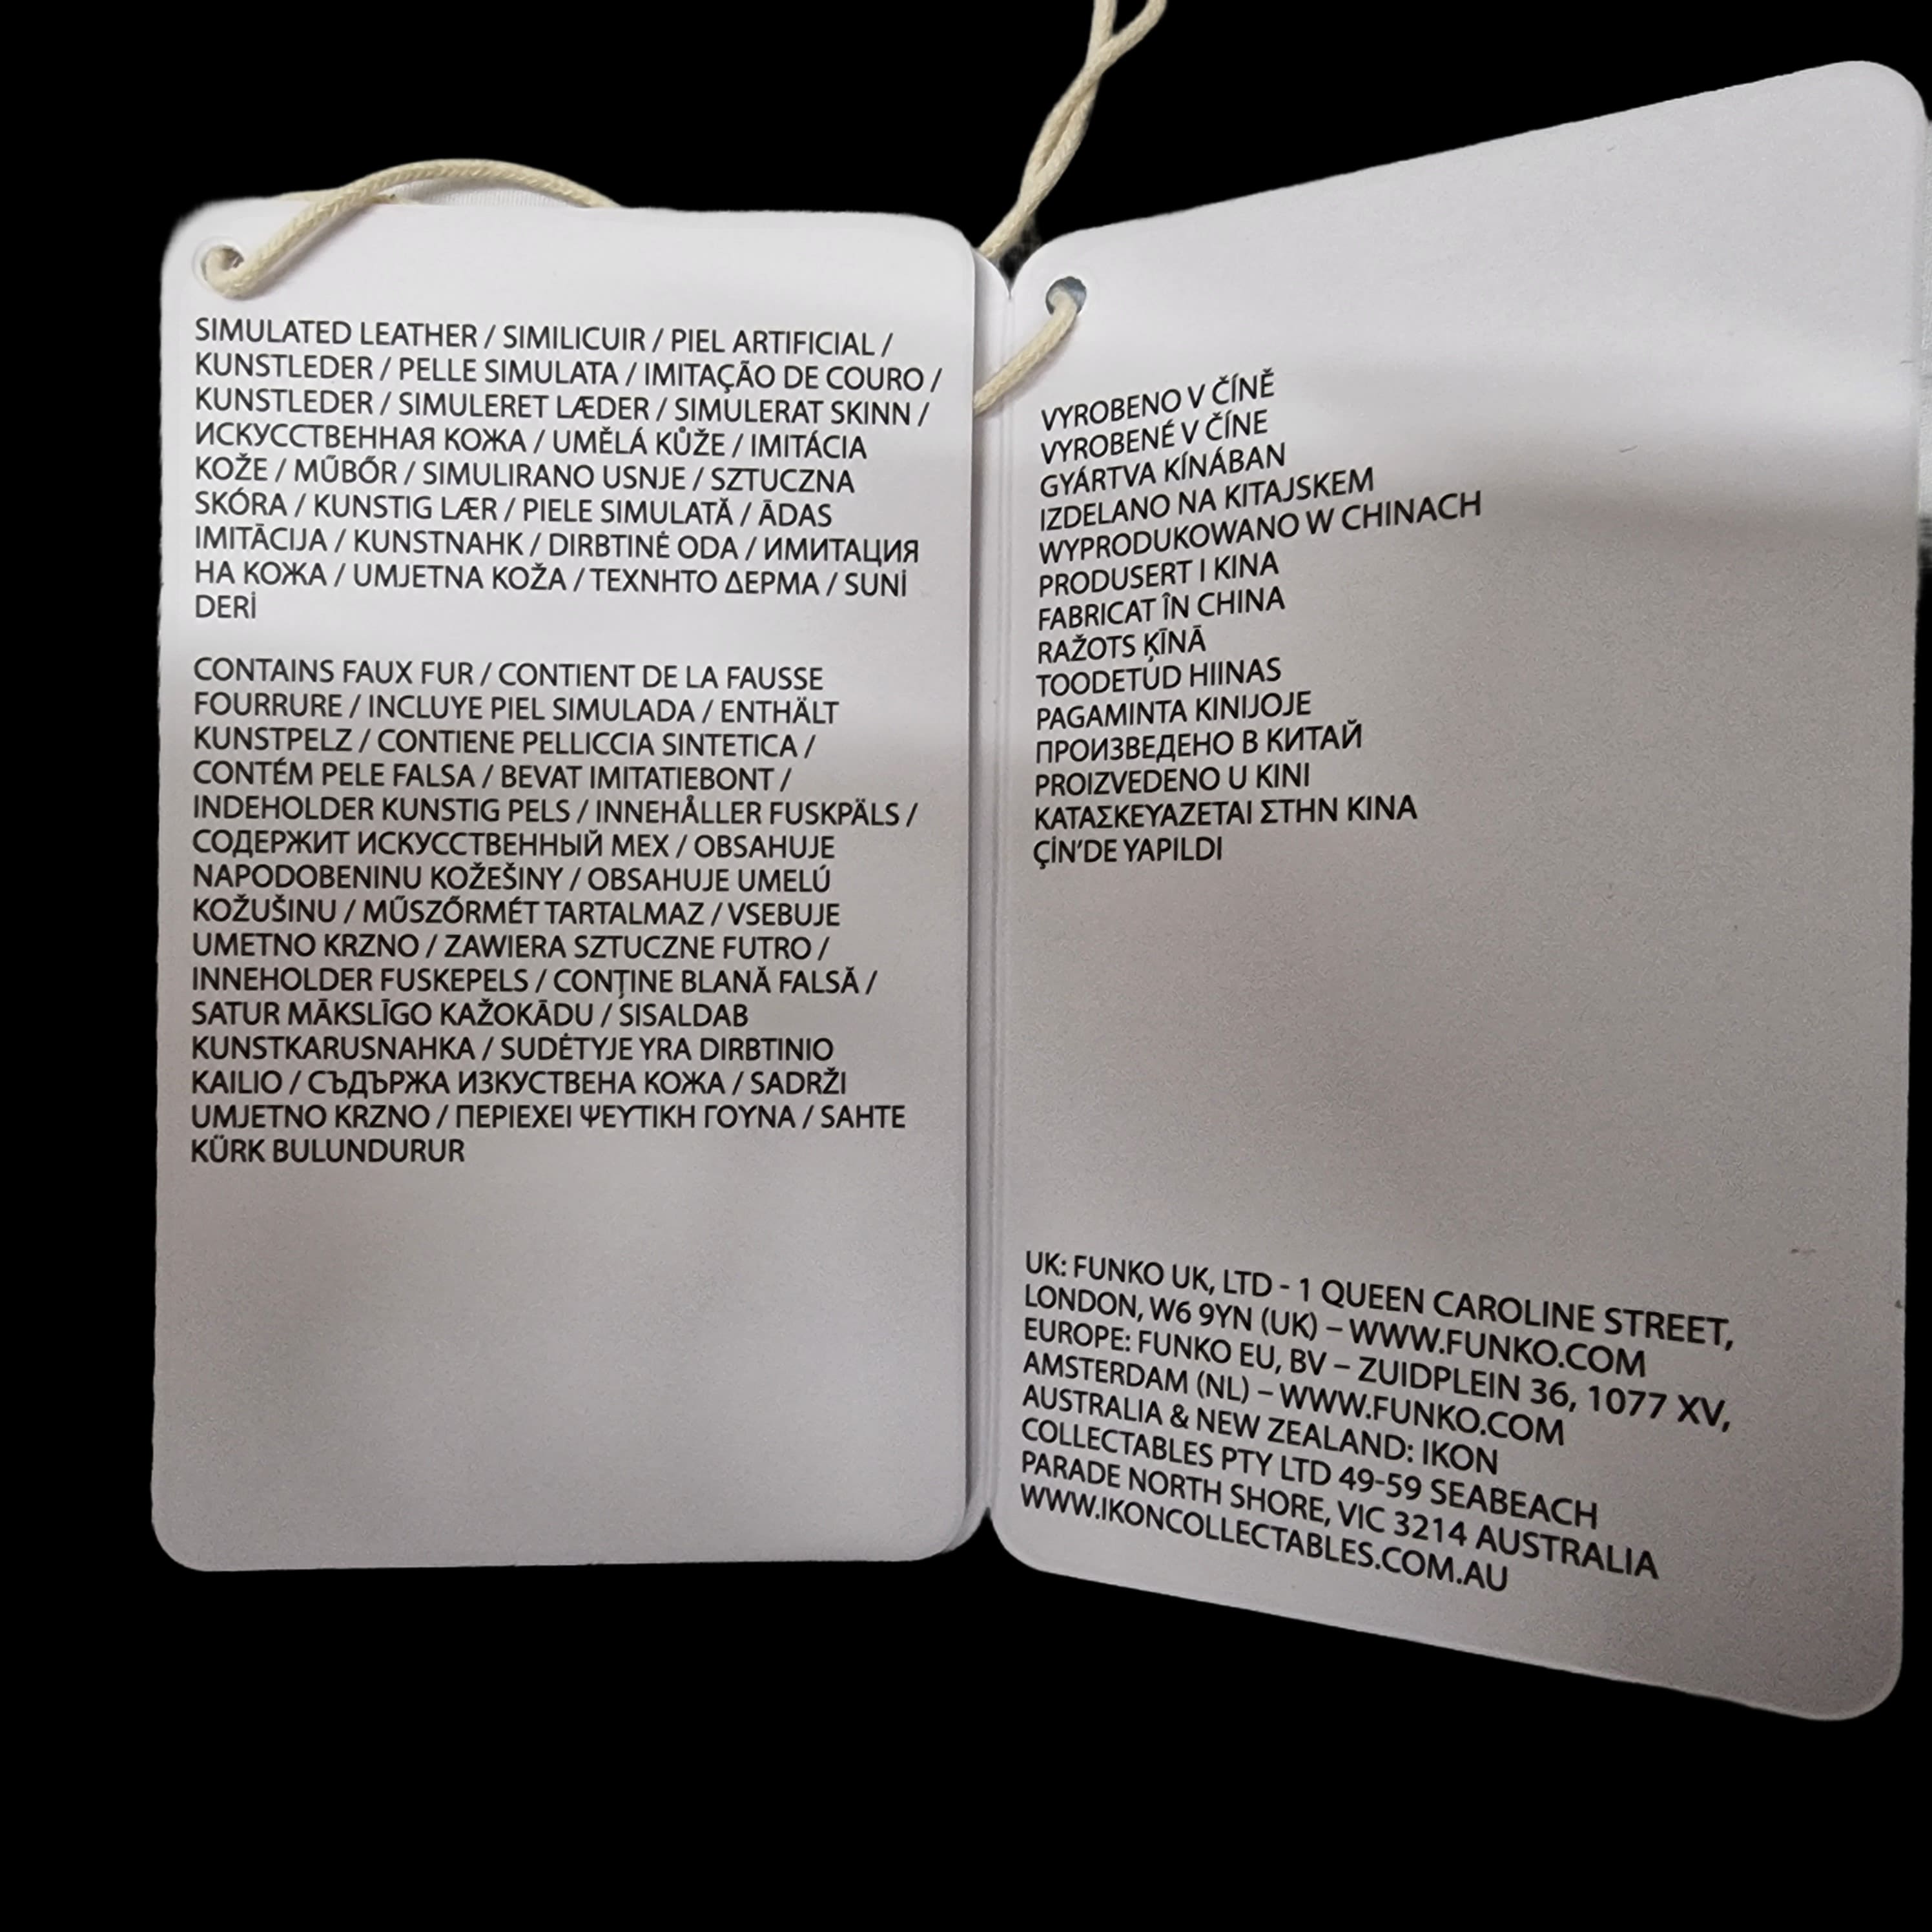 SIMULATED LEATHER / SIMILICUIR / PIEL ARTIFICIAL /
KUNSTLEDER / PELLE SIMULATA / IMITAÇÃO DE COURO /
KUNSTLEDER / SIMULERET LÆDER / SIMULERAT SKINN /
ИСКУССТВЕННАЯ КОЖА / UMĚLÁ KŮŽE / IMITÁCIA
KOŽE / MŰBŐR / SIMULIRANO USNJE / SZTUCZNA
SKÓRA / KUNSTIG LÆR / PIELE SIMULATĂ / ĀDAS
IMITĀCIJA / KUNSTNAHK / DIRBTINĖ ODA / ИМИТАЦИЯ
НА КОЖА / UMJETNA KOŽA / ΤΕΧΝΗΤΟ ΔΕΡΜΑ / SUNİ
DERİ
CONTAINS FAUX FUR / CONTIENT DE LA FAUSSE
FOURRURE / INCLUYE PIEL SIMULADA / ENTHÄLT
KUNSTPELZ / CONTIENE PELLICCIA SINTETICA /
CONTÉM PELE FALSA / BEVAT IMITATIEBONT /
INDEHOLDER KUNSTIG PELS / INNEHÅLLER FUSKPÄLS /
СОДЕРЖИТ ИСКУССТВЕННЫЙ МЕХ / OBSAHUJE
NAPODOBENINU KOŽEŠINY / OBSAHUJE UMELÚ
KOŽUŠINU / MŰSZŐRMÉT TARTALMAZ / VSEBUJE
UMETNO KRZNO / ZAWIERA SZTUCZNE FUTRO /
INNEHOLDER FUSKEPELS / CONȚINE BLANĂ FALSĂ /
SATUR MĀKSLĪGO KAŽOKĀDU / SISALDAB
KUNSTKARUSNAHKA / SUDĖTYJE YRA DIRBTINIO
KAILIO / СЪДЪРЖА ИЗКУСТВЕНА КОЖА / SADRŽI
UMJETNO KRZNO / ΠΕΡΙΕΧΕΙ ΨΕΥΤΙΚΗ ΓΟΥΝΑ / SAHTE
KÜRK BULUNDURUR
VYROBENO V ČÍNĚ
VYROBENÉ V ČÍNE
GYÁRTVA KÍNÁBAN
IZDELANO NA KITAJSKEM
WYPRODUKOWANO W CHINACH
PRODUSERT I KINA
FABRICAT ÎN CHINA
RAŽOTS ĶĪNĀ
TOODETUD HIINAS
PAGAMINTA KINIJOJE
ПРОИЗВЕДЕНО В КИТАЙ
PROIZVEDENO U KINI
ΚΑΤΑΣΚΕΥΑΖΕΤΑΙ ΣΤΗΝ ΚΙΝΑ
ÇİN'DE YAPILDI
UK: FUNKO UK, LTD - 1 QUEEN CAROLINE STREET,
LONDON, W6 9YN (UK) – WWW.FUNKO.COM
EUROPE: FUNKO EU, BV – ZUIDPLEIN 36, 1077 XV,
AMSTERDAM (NL) – WWW.FUNKO.COM
AUSTRALIA & NEW ZEALAND: IKON
COLLECTABLES PTY LTD 49-59 SEABEACH
PARADE NORTH SHORE, VIC 3214 AUSTRALIA
WWW.IKONCOLLECTABLES.COM.AU